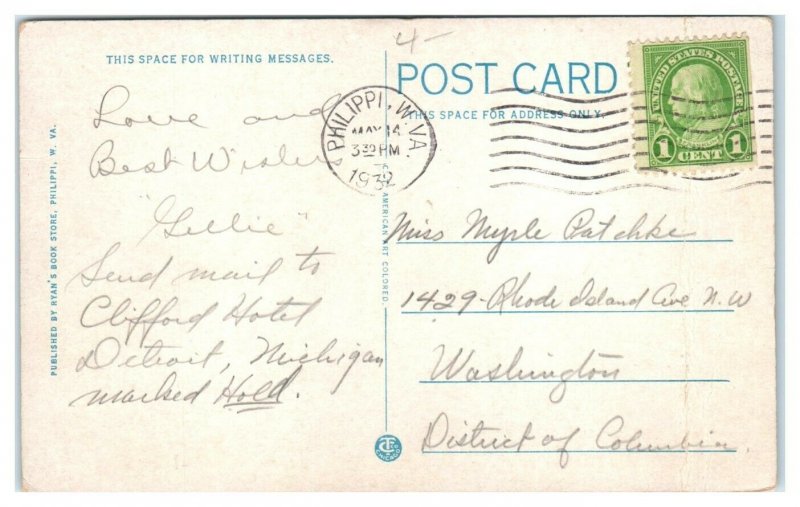 THIS SPACE FOR WRITING MESSAGES.
Love and
Best Wishes
"Gillie"
Send mail to
Clifford Hotel
Detroit, Michigan
marked Hold.
PUBLISHED BY RYAN'S BOOK STORE, PHILIPPI, W. VA.
4-
POST CARD
THIS SPACE FOR ADDRESS ONLY.
PHILIPPI, W. VA
MAY 14
3 30 PM
1932
AMERICAN ART COLORED.
UNITED STATES POSTAGE
1 CENT 1
Miss Myrle Patchke
1429 - Rhode Island Ave N.W
Washington
District of Columbia
CHICAGO